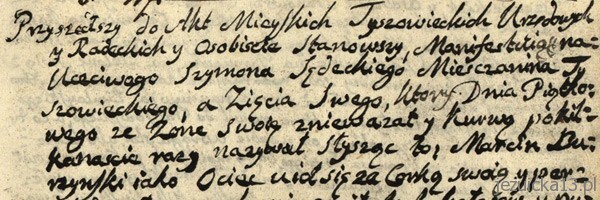 Przyszedłszy do Akt Mieyskich Tyszowieckich Urzędowych
y Radeckich y Osobiscie Stanowszy, Manifestuię na
Ucciwego Szymona Sędeckiego Miesczanina Ty-
szowieckiego, a Zięcia Swego, ktory Dnia Piątko-
wego ze Zone swoię zniewazał y kurwą po kil-
kanascie razy nazywał słysząc to, Marcin Bu-
rzynski iako Ociec uiol się za Corkę swoię y per-
jezuicka13.pl